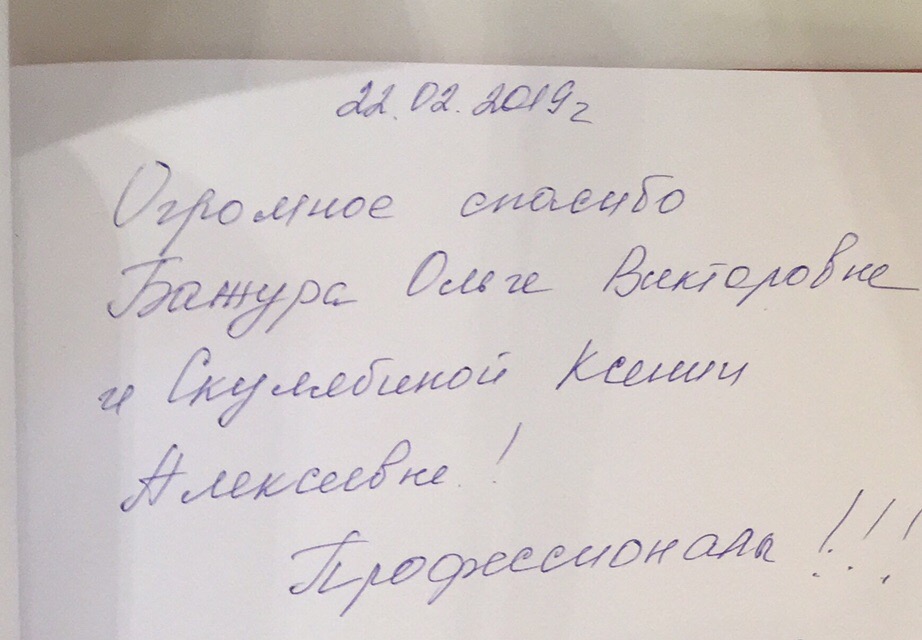 22.02.2019г
Огромное спасибо
Бажура Ольге Викторовне
и Скулябиной Ксении
Алексеевне!
Профессионалы!!!